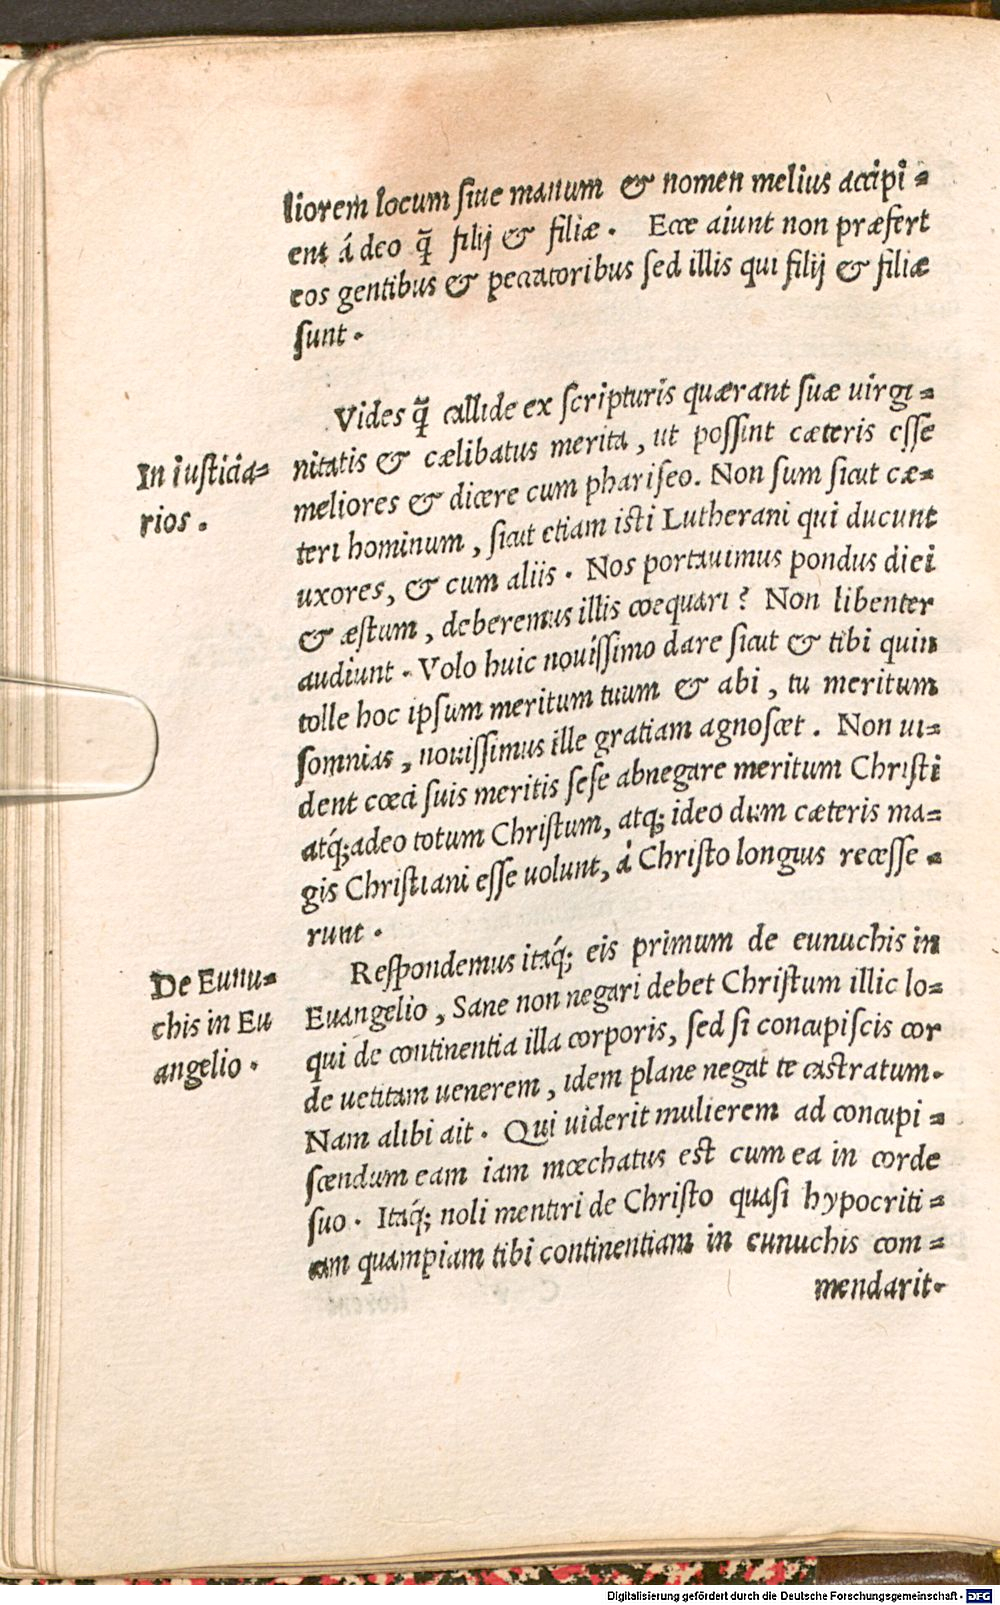 liorem locum ſiue manum & nomen melius accipi=
ent á deo q̃ filij & filiæ. Ecce aiunt non præfert
eos gentibus & peccatoribus ſed illis qui filij & filiæ
ſunt.
Vides q̃ callide ex ſcripturis quærant ſuæ uirgi=
nitatis & cælibatus merita, ut poſſint cæteris eſſe
In iusticia=
meliores & dicere cum phariſeo. Non ſum ſicut cæ=
rios.
teri hominum, ſicut etiam iſti Lutherani qui ducunt
uxores, & cum aliis. Nos portauimus pondus diei
& æſtum, deberemus illis coequari? Non libenter
audiunt. Volo huic nouiſſimo dare ſicut & tibi quin
tolle hoc ipſum meritum tuum & abi, tu meritum
ſomnias, nouiſſimus ille gratiam agnoſcet. Non ui=
dent cœci ſuis meritis ſeſe abnegare meritum Chriſti
atq́;adeo totum Chriſtum, atq; ideo dum cæteris ma=
gis Chriſtiani eſſe uolunt, á Chriſto longius receſſe=
runt.
De Eunu=
chis in Eu
angelio.
Reſpondemus itaq́; eis primum de eunuchis in
Euangelio, Sane non negari debet Chriſtum illic lo=
qui de continentia illa corporis, ſed ſi concupiſcis cor
de uetitam uenerem, idem plane negat te caſtratum.
Nam alibi ait. Qui uiderit mulierem ad concupi=
ſcendum eam iam mœchatus eſt cum ea in corde
ſuo. Itaq́; noli mentiri de Chriſto quaſi hypocriti=
cam quampiam tibi continentiam in eunuchis com=
mendarit.
Digitalisierung gefördert durch die Deutsche Forschungsgemeinschaft - DFG